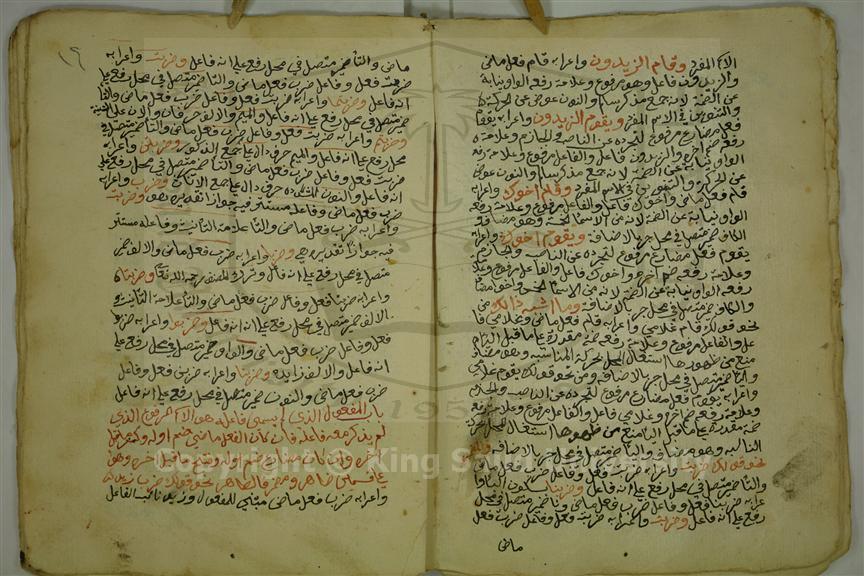 الاسم المفرد وقام الزيدون واعرابه قام فعل ماض
والزيدون فاعل وهو مرفوع وعلامة رفعه الواو نيابة
عن الضمة لانه جمع مذكر سالم والنون عوض عن الحركة
والتنوين في الاسم المفرد ويقوم الزيدون واعرابه يقوم
فعل مضارع مرفوع لتجرده عن الناصب والجازم وعلامة
رفعه ضم اخره والزيدون فاعل والفاعل مرفوع وعلامة رفعه
الواو نيابة عن الضمة لانه جمع مذكر سالم والنون عوض
عن الحركة والتنوين في الاسم المفرد وقام اخوك واعرابه
قام فعل ماض واخوك فاعل والفاعل مرفوع وعلامة رفعه
الواو نيابة عن الضمة لانه من الاسماء الخمسة وهو مضاف و
الكاف ضمير متصل في محل جر بالاضافة ويقوم اخوك واعرابه
يقوم فعل مضارع مرفوع لتجرده عن الناصب والجازم
وعلامة رفعه ضم اخره واخوك فاعل والفاعل مرفوع وعلامة
رفعه الواو نيابة عن الضمة لانه من الاسماء الخمسة واخو مضاف
والكاف ضمير متصل في محل جر بالاضافة وما اشبه ذالك من
نحو قولك قام غلامي واعرابه قام فعل ماض وغلامي فا
عل والفاعل مرفوع وعلامة رفعه ضمة مقدرة على ماقبل الياء
منع من ظهورها اشتغال المحل بحركة المناسبة وهو مضاف
والياء ضمير متصل في محل جر بالاضافة ومن نحو قولك يقوم غلامي
واعرابه يقوم فعل مضارع مرفوع لتجرده عن الناصب والجازم
وعلامة رفعه ضم اخره وغلامي فاعل والفاعل مرفوع وعلامة رفعه
ضمة مقدرة على ماقبل الياء منع من ظهورها اشتغال المحل بحركة
المناسبة وهو مضاف والياء ضمير متصل في محل جر بالاضافة
نحو قولك ضربت واعرابه ضربت فعل وفاعل ضرب فعل ماض
والتاء ضمير متصل في محل رفع على انه فاعل وضربنا بسكون الباء وا
عرابه ضربنا فعل وفاعل ضرب فعل ماض ونا ضمير متصل في محل
رفع على انه فاعل وضربت واعرابه ضربت فعل وفاعل ضرب فعل
ماض
١٩
ماض والتاء ضمير متصل في محل رفع على انه فاعل وضربت واعرابه
ضربت فعل وفاعل ضرب فعل ماض والتاء ضمير متصل في محل رفع على
انه فاعل وضربتما واعرابه ضربتما فعل وفاعل ضرب فعل ماض والتاء
ضمير متصل في محل رفع على انه فاعل والميم والالف حرفان دالان على التثنية
وضربتم واعرابه ضربتم فعل وفاعل ضرب فعل ماض والتاء ضمير متصل في
محل رفع على انه فاعل والميم حرف دال على جمع الذكور وضربتن واعرابه
ضربتن فعل وفاعل ضرب فعل ماض والتاء ضمير متصل في محل رفع على
انه فاعل والنون المشددة حرف دال على جمع الاناث وضرب واعرابه
ضرب فعل ماض وفاعله مستتر فيه جوازا تقديره هو وضربت
واعرابه ضرب فعل ماض والتاء علامة التانيث وفاعله مستتر
فيه جوازا تقديره هي وضربا واعرابه ضرب فعل ماض والالف ضمير
متصل في محل رفع على انه فاعل وترك المصنف رحمه الله تعالى وضربتا
واعرابه ضربتا فعل وفاعل ضرب فعل ماض والتاء علامة التانيث و
الالف ضمير متصل في محل رفع على انه فاعل وضربوا واعرابه ضربوا
فعل وفاعل ضرب فعل ماض والواو ضمير متصل في محل رفع على
انه فاعل والالف زايدة وضربن واعرابه ضربن فعل وفاعل
ضرب فعل ماض والنون ضمير متصل في محل رفع على انه فاعل
باب المفعول الذي لم يسمى فاعله هو الاسم المرفوع الذي
لم يذكر معه فاعله فان كان الفعل ماضي ضم اوله وكسر ماقبل
اخره وان كان مضارع ضم اوله وفتح ماقبل اخره وهو
على قسمين ظاهر ومضمر فالظاهر نحو قولك ضرب زيد
واعرابه ضرب فعل ماض مبني للمفعول وزيد نائب الفاعل
Copyright © King Saud University
1957